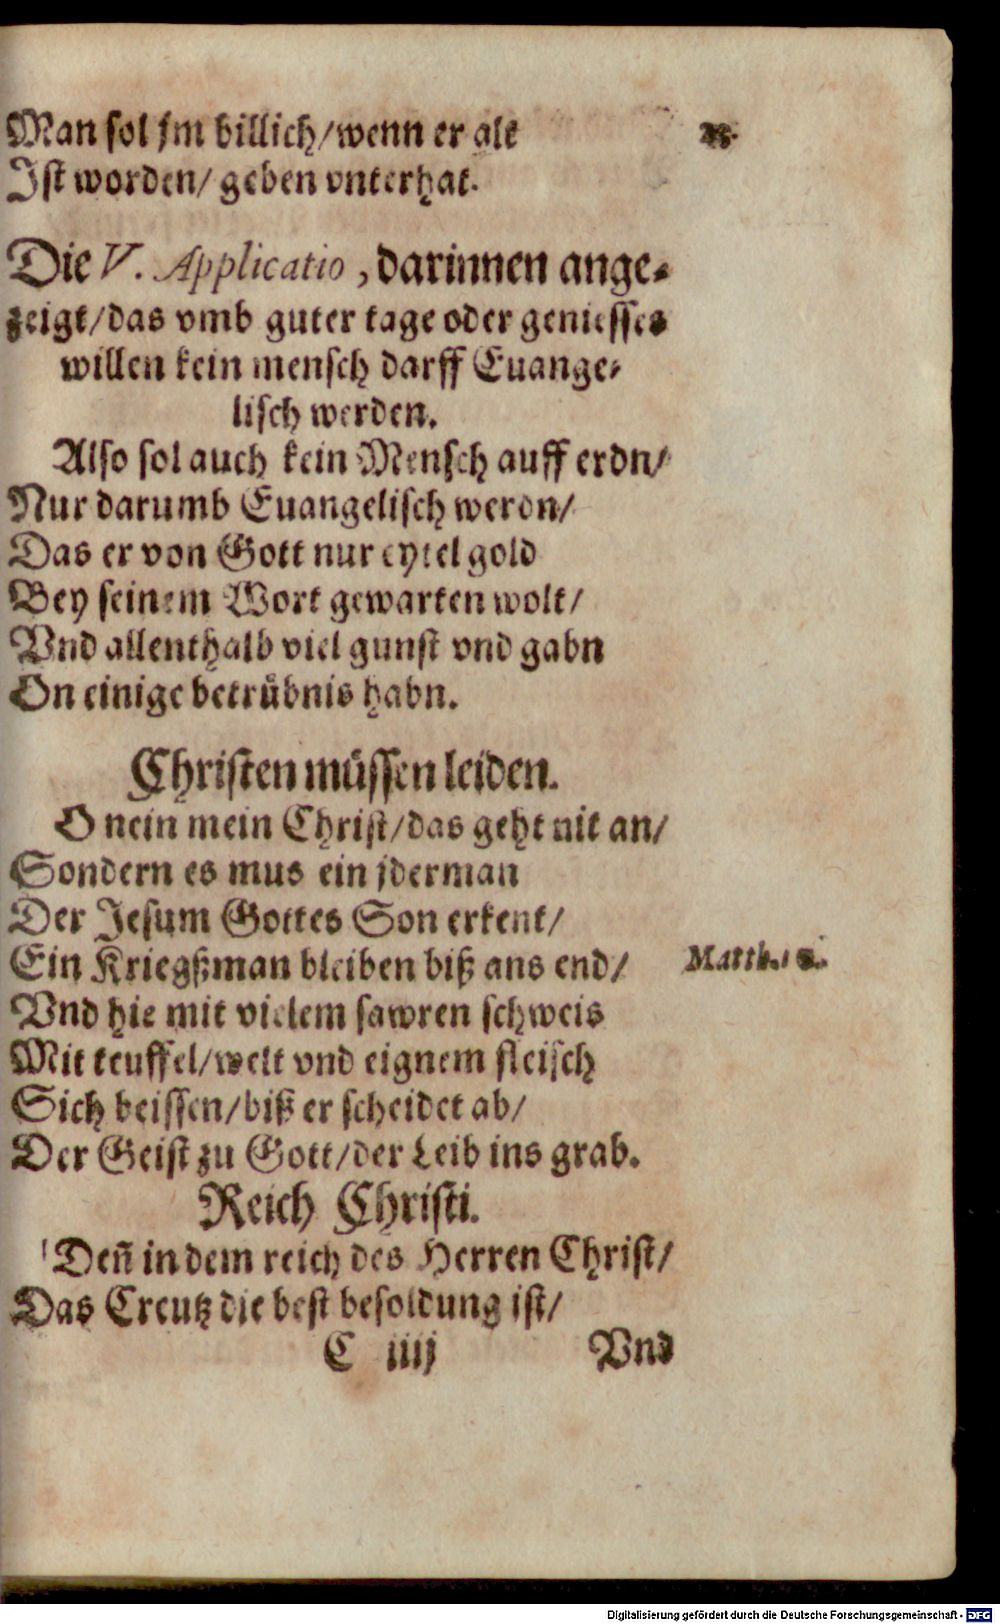 Man sol jm billich/wenn er alt
Ist worden/ geben vnterhat.
Die V. Applicatio, darinnen ange⸗
zeigt/das vmb guter tage oder geniesses
willen kein mensch darff Euange⸗
lisch werden.
Also sol auch kein Mensch auff erdn/
Nur darumb Euangelisch werdn/
Das er von Gott nur eytel gold
Bey seinem Wort gewarten wolt/
Vnd allenthalb viel gunst vnd gabn
On einige betrübnis habn.
Christen müssen leiden.
O nein mein Christ/das geht nit an/
Sondern es mus ein jderman
Der Jesum Gottes Son erkent/
Ein Kriegßman bleiben biß ans end/
Matth.
Vnd hie mit vielem sawren schweis
Mit teuffel/welt vnd eignem fleisch
Sich beissen/biß er scheidet ab/
Der Geist zu Gott/der Leib ins grab.
Reich Christi.
Deñ in dem reich des Herren Christ/
Das Creutz die best besoldung ist/
C iiij Vnd
Digitalisierung gefördert durch die Deutsche Forschungsgemeinschaft - DFG